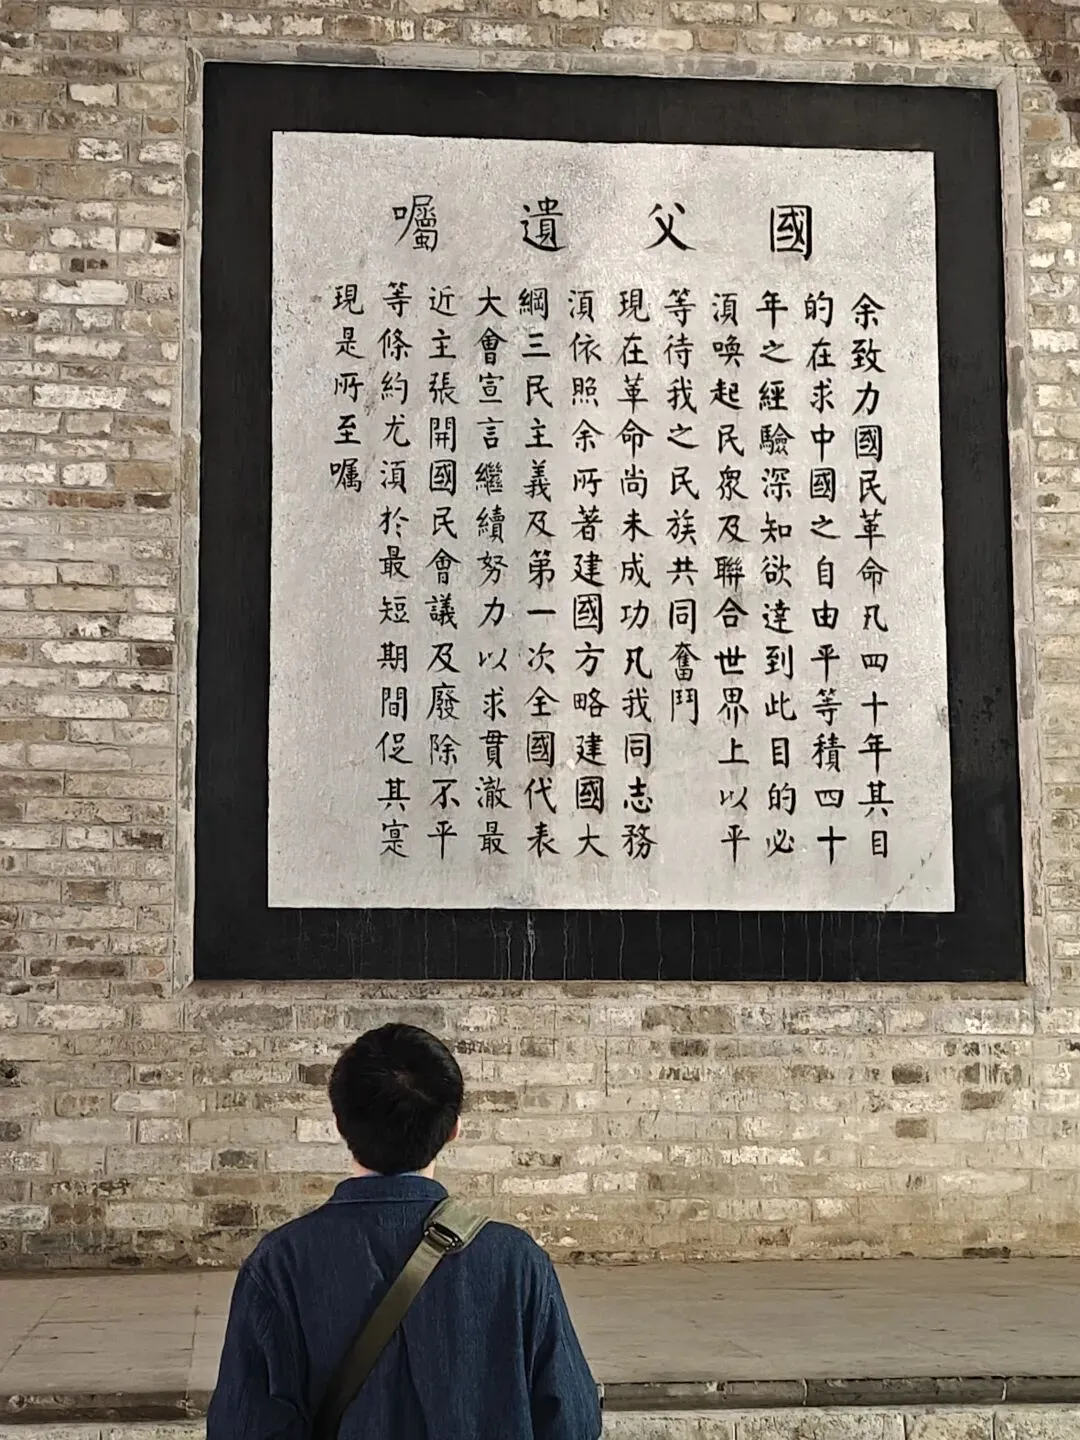 國父遺囑
余致力國民革命凡四十年其目
的在求中國之自由平等積四十
年之經驗深知欲達到此目的必
須喚起民衆及聯合世界上以平
等待我之民族共同奮鬥
現在革命尚未成功凡我同志務
須依照余所著建國方略建國大
綱三民主義及第一次全國代表
大會宣言繼續努力以求貫澈最
近主張開國民會議及廢除不平
等條約尤須於最短期間促其寔
現是所至囑